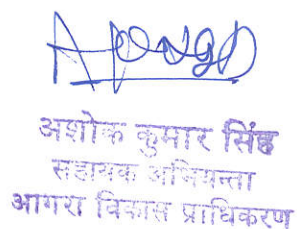 अशोक कुमार सिंह
सहायक अभियन्ता
आगरा विकास प्राधिकरण